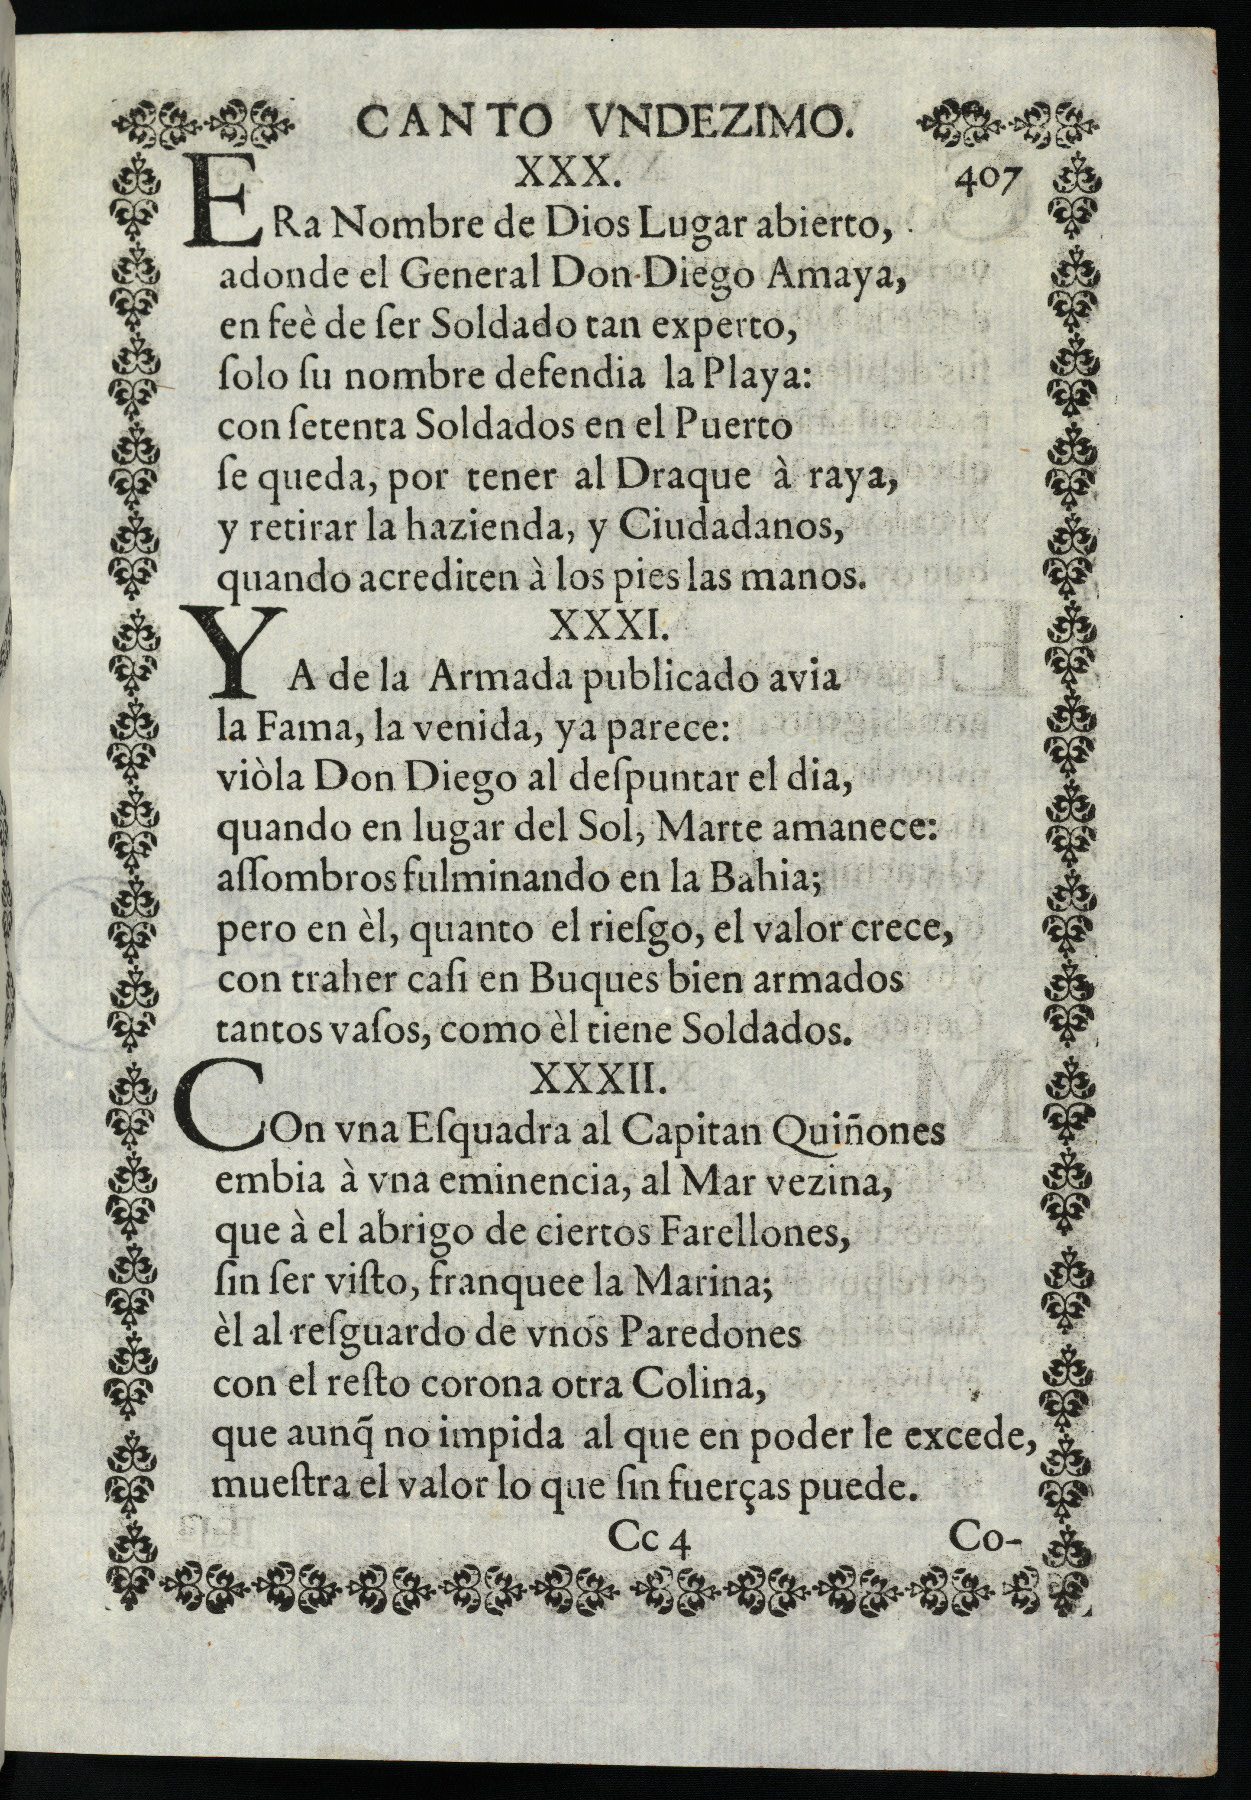 CANTO VNDEZIMO.
XXX. 407
ERa Nombre de Dios Lugar abierto,
adonde el General Don Diego Amaya,
en feè de ſer Soldado tan experto,
ſolo ſu nombre defendia la Playa:
con ſetenta Soldados en el Puerto
ſe queda, por tener al Draque à raya,
y retirar la hazienda, y Ciudadanos,
quando acrediten à los pies las manos.
XXXI.
YA de la Armada publicado avia
la Fama, la venida, ya parece:
viòla Don Diego al deſpuntar el dia,
quando en lugar del Sol, Marte amanece:
aſſombros fulminando en la Bahia;
pero en èl, quanto el rieſgo, el valor crece,
con traher caſi en Buques bien armados
tantos vaſos, como èl tiene Soldados.
XXXII.
COn vna Eſquadra al Capitan Quiñones
embia à vna eminencia, al Mar vezina,
que à el abrigo de ciertos Farellones,
ſin ſer viſto, franquee la Marina;
èl al reſguardo de vnos Paredones
con el reſto corona otra Colina,
que aunq̃ no impida al que en poder le excede,
mueſtra el valor lo que ſin fuerças puede.
Cc 4 Co-